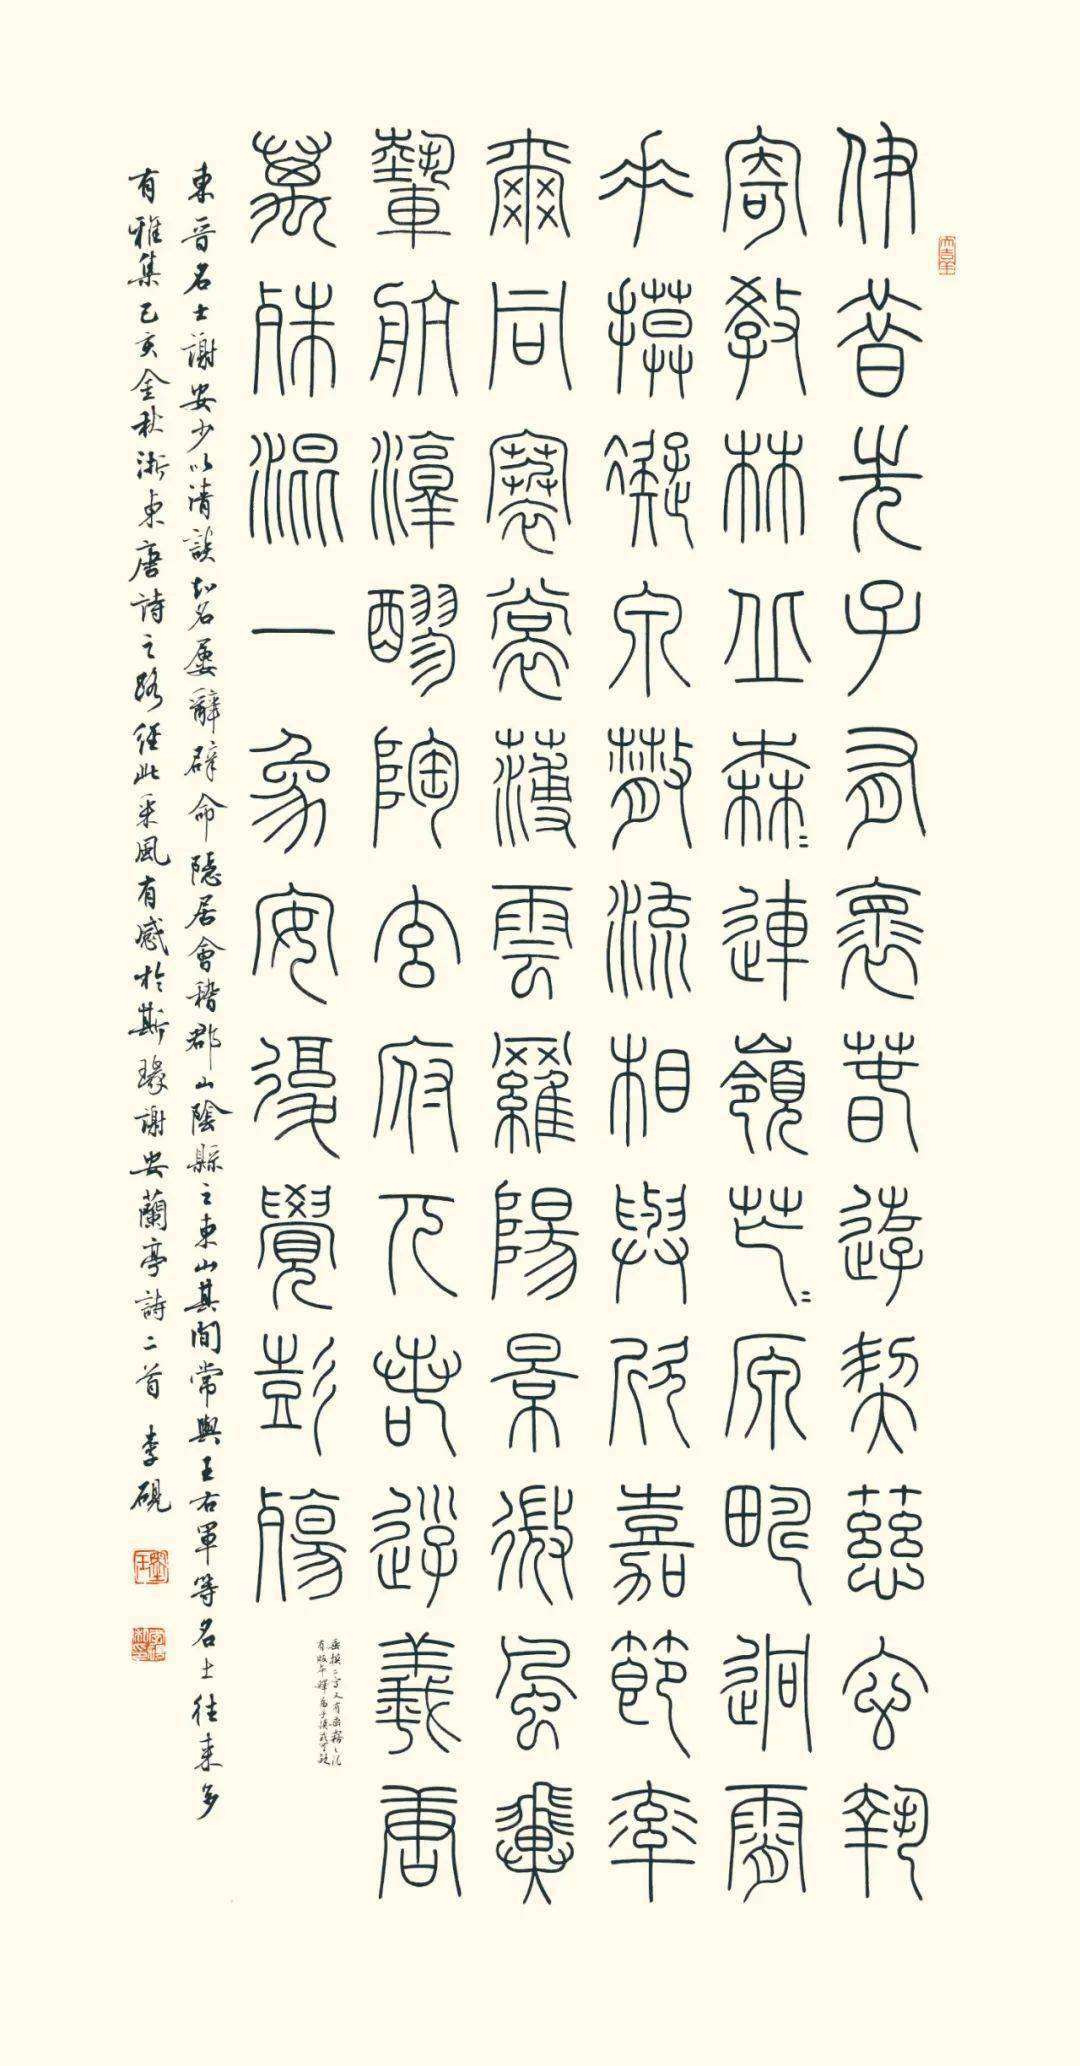 伊昔先子有懷春遊契茲玄執
寄傲林丘森〻連嶺芒〻原疇迥霄
垂摸凝泉散流相與欣嘉節率
爾同褰裳薄雲羅陽景微風翼
輕航淳醪陶玄府兀若遊羲唐
萬殊混一象安復覺彭殤
垂摸二字又有垂霧之說
有版本釋為手摸
東晉名士謝安少以清談知名屢辭辟命隱居會稽郡山陰縣之東山其間常與王右軍等名士往來多
有雅集己亥金秋浙東唐詩之路經此采風有感於斯錄謝安蘭亭詩二首 李硯